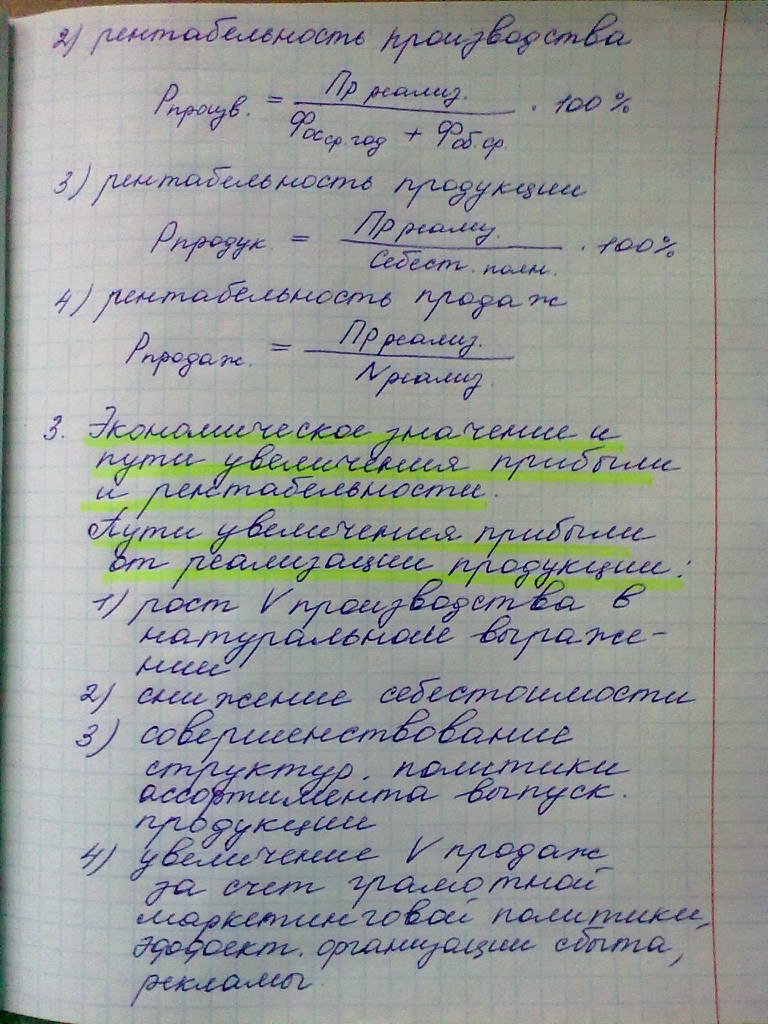 2) рентабельность производства
Рпроизв. = Пр реализ. / Фос ср.год + Фоб.ср. · 100 %
3) рентабельность продукции
Рпродук. = Пр реализ. / Себест. полн. · 100%
4) рентабельность продаж
Рпродаж. = Пр реализ. / N реализ.
3. Экономическое значение и
пути увеличения прибыли
и рентабельности.
Пути увеличения прибыли
от реализации продукции:
1) рост V производства в
натуральном выраже-
нии
2) снижение себестоимости
3) совершенствование
структур. политики
ассортимента выпуск.
продукции
4) увеличение V продаж
за счет грамотной
маркетинговой политики,
эффект. организации сбыта,
рекламы.